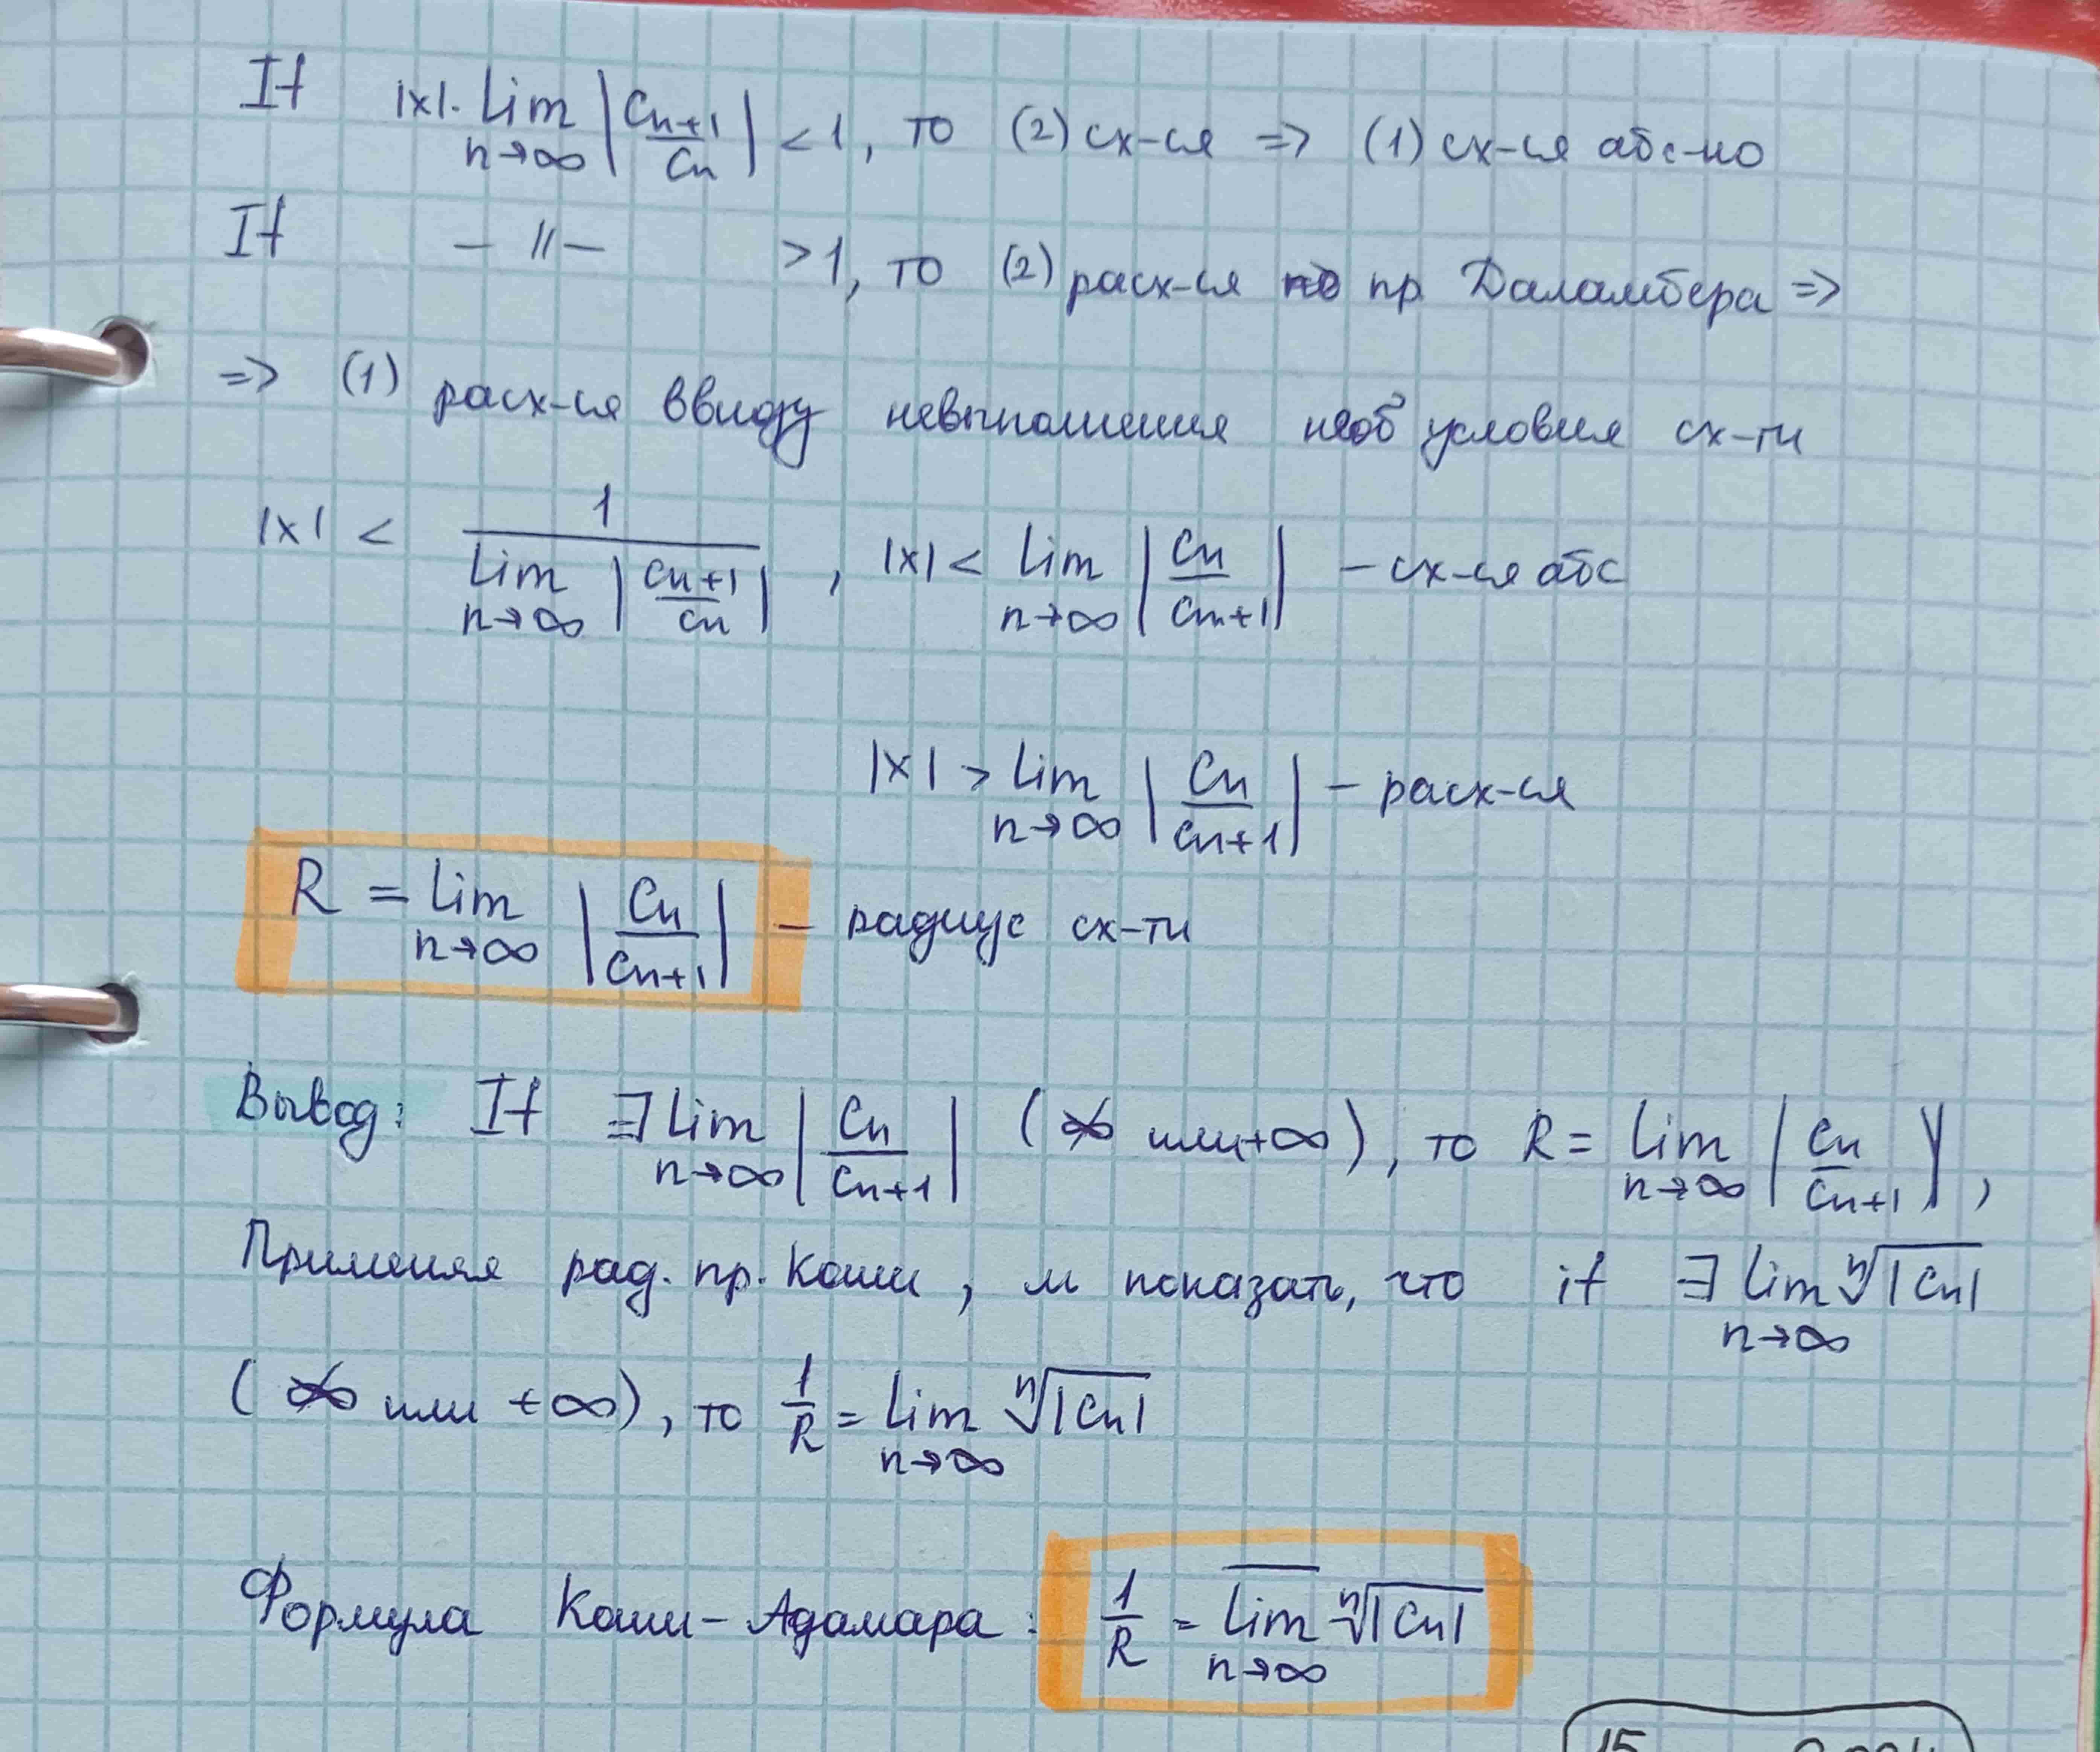 If |x|· lim n→∞ |Cn+1/Cn| < 1, то (2) сх-ся => (1) сх-ся абс-но
If — // — > 1, то (2) расх-ся по пр. Даламбера =>
=> (1) расх-ся ввиду невыполнения необ условия сх-ти
|x| < 1 / lim n→∞ |Cn+1/Cn| , |x| < lim n→∞ |Cn/Cn+1| – сх-ся абс
|x| > lim n→∞ |Cn/Cn+1| – расх-ся
R = lim n→∞ |Cn/Cn+1| – радиус сх-ти
Вывод: If ∃ lim n→∞ |Cn/Cn+1| (∞̸ или +∞), то R = lim n→∞ |Cn/Cn+1|,
Применяя рад. пр. Коши, м показать, что if ∃ lim n→∞ ⁿ√|Cn|
(∞̸ или +∞), то 1/R = lim n→∞ ⁿ√|Cn|
Формула Коши-Адамара: 1/R = l̅i̅m̅ n→∞ ⁿ√|Cn|
15